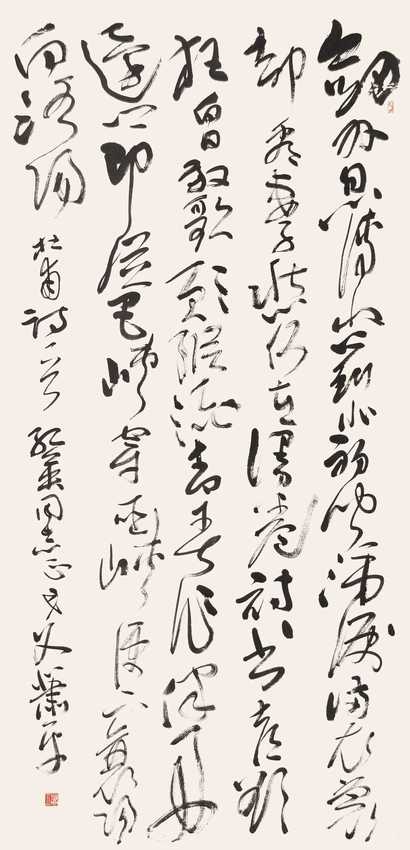 劍外忽傳收薊北初聞涕淚滿衣裳
却看妻子愁何在漫卷詩書喜欲
狂白日放歌須縱酒青春作伴好
還鄉即從巴峽穿巫峽便下襄陽
向洛陽 杜甫詩一首 同志正 蕭平